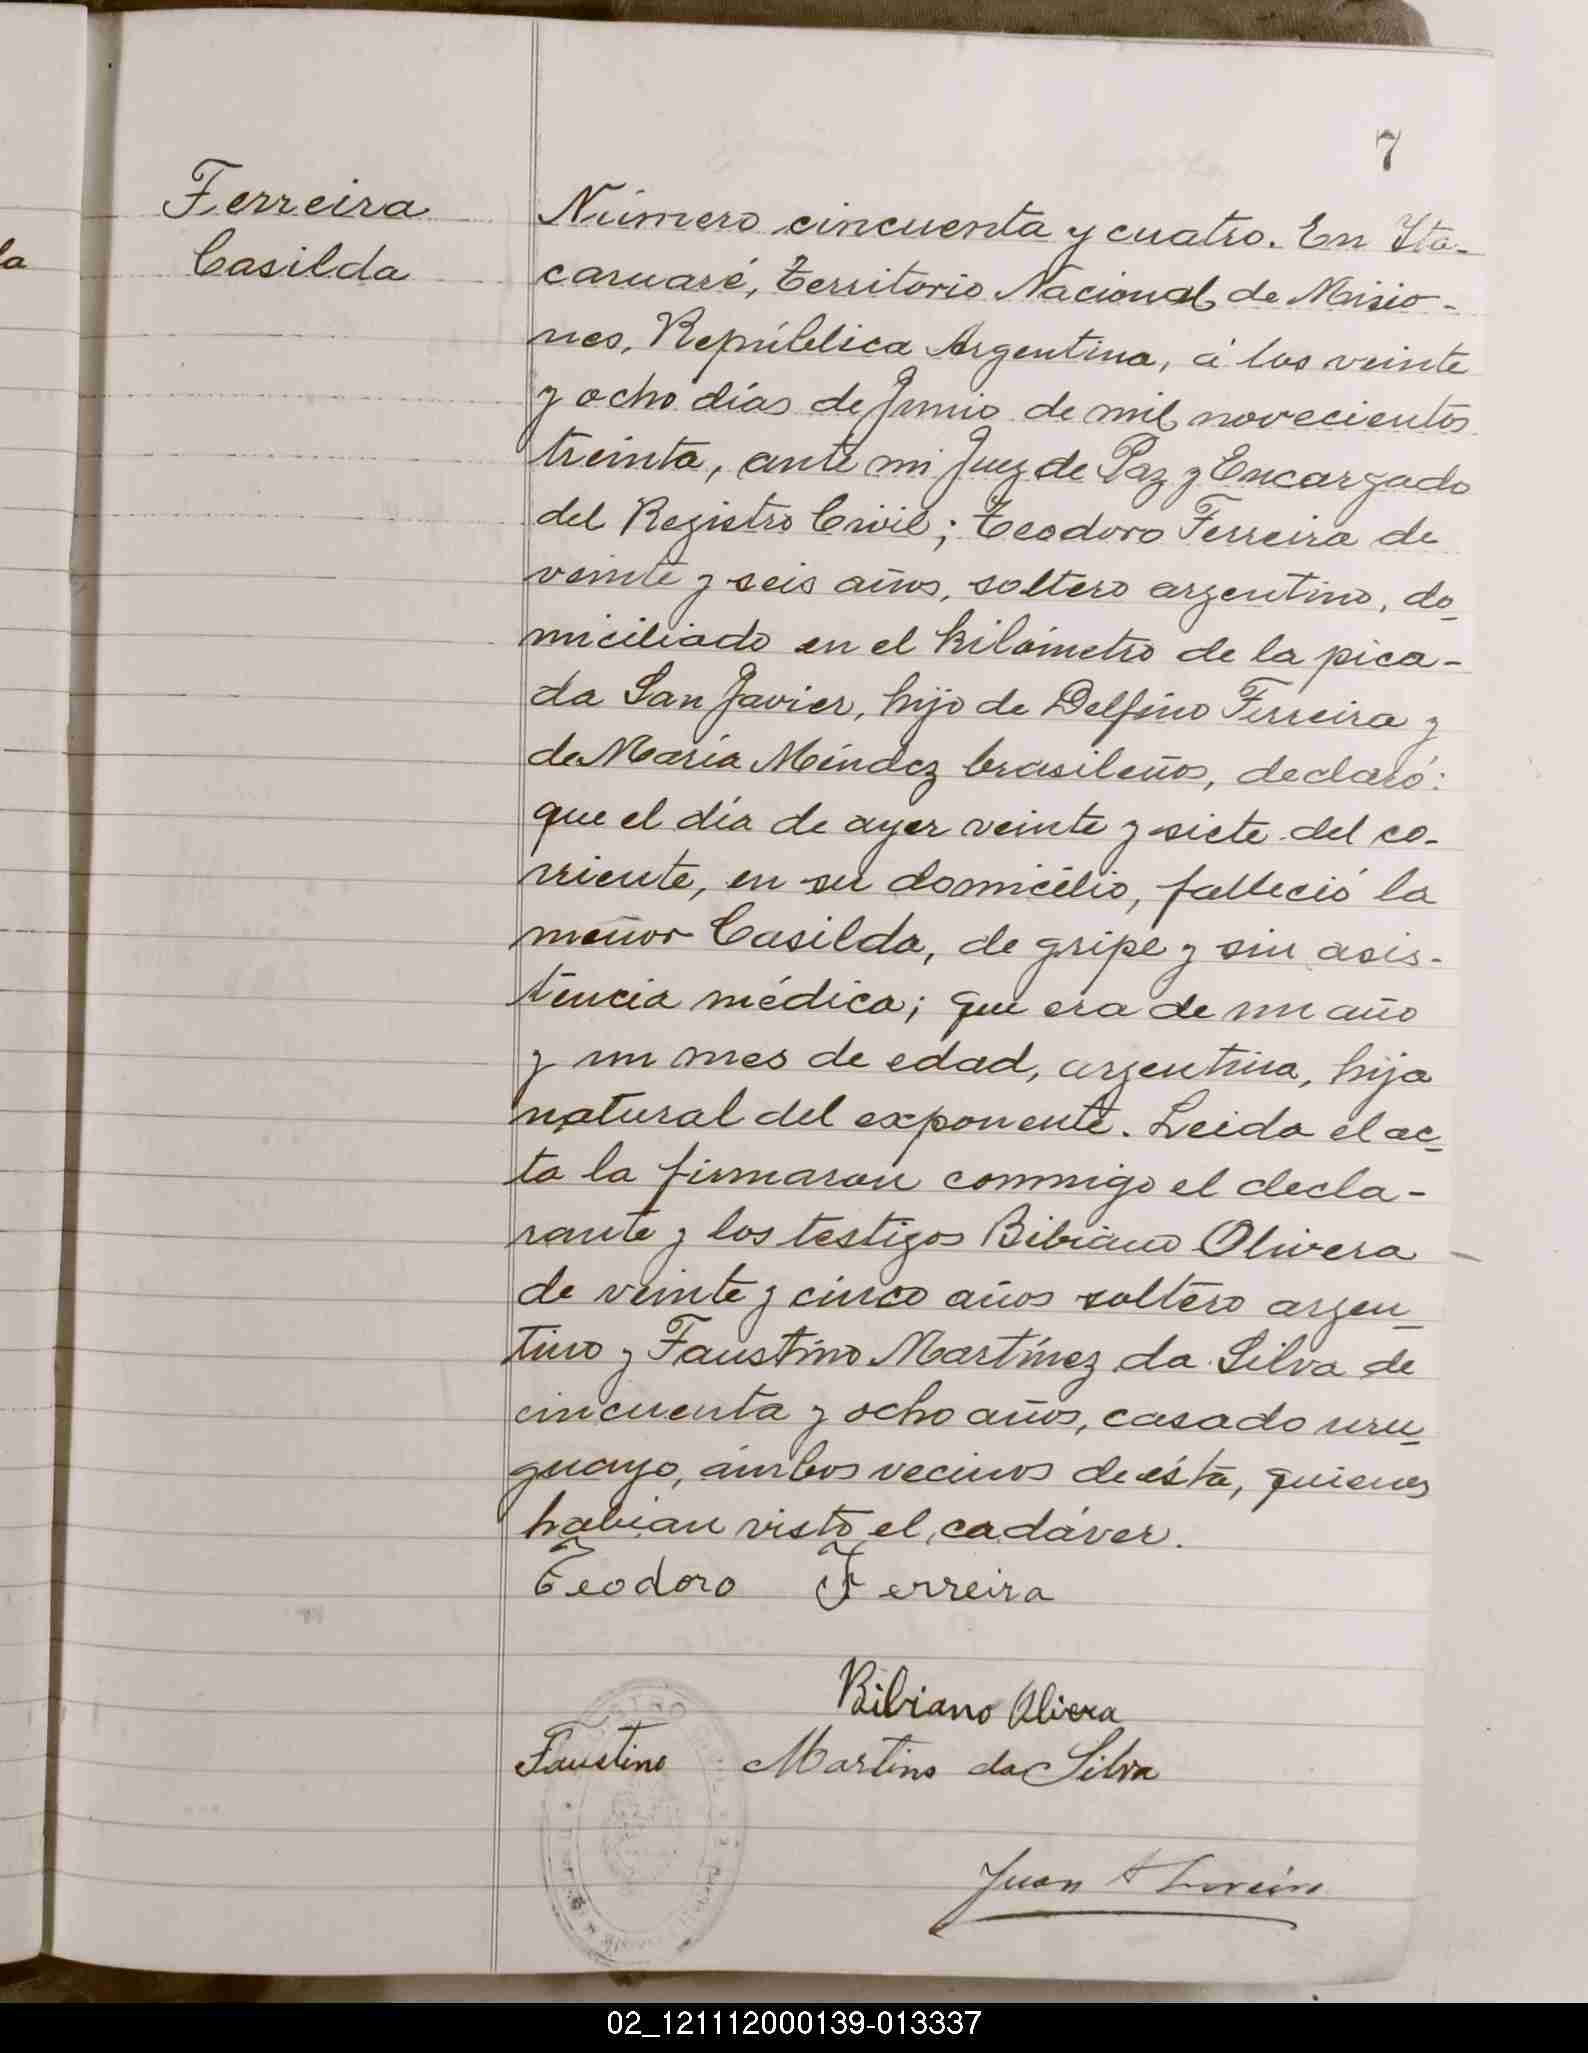 7
Ferreira
Casilda
la
Número cincuenta y cuatro. En Yta-
caruaré, Territorio Nacional de Misio-
nes, República Argentina, á los veinte
y ocho días de Junio de mil novecientos
treinta, ante mi Juez de Paz y Encargado
del Registro Civil; Teodoro Ferreira de
veinte y seis años, soltero argentino, do-
miciliado en el kilómetro de la pica-
da San Javier, hijo de Delfino Ferreira y
de María Méndez brasileños, declaró:
que el día de ayer veinte y siete del co-
rriente, en su domicilio, falleció la
menor Casilda, de gripe y sin asis-
tencia médica; que era de un año
y un mes de edad, argentina, hija
natural del exponente. Leida el ac-
ta la firmaron conmigo el decla-
rante y los testigos Bibiano Olivera
de veinte y cinco años soltero argen-
tino y Faustino Martínez da Silva de
cincuenta y ocho años, casado uru-
guayo, ámbos vecinos de ésta, quienes
habian visto el cadáver.
Teodoro Ferreira
Bibiano Olivera
Faustino Martins da Silva
Juan A
02_121112000139-013337